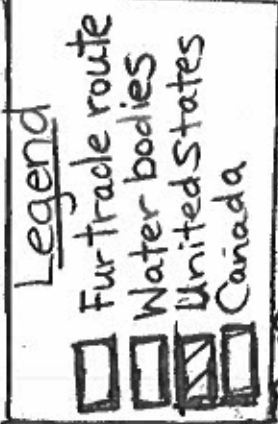 Legend
Fur trade route
Water bodies
United States
Canada